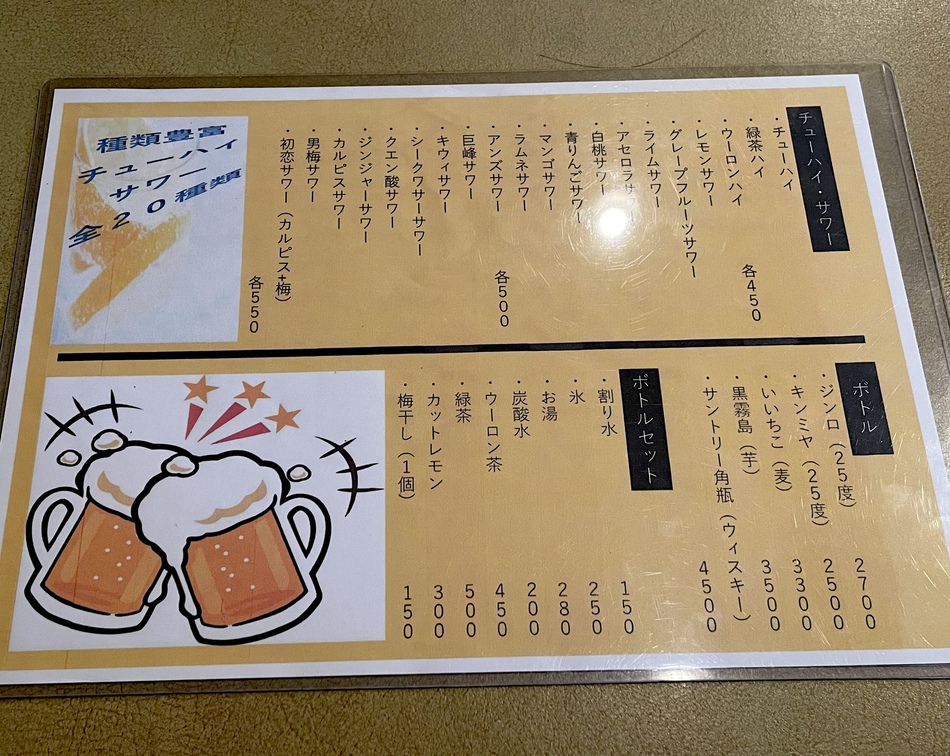 チューハイ・サワー
・チューハイ
・緑茶ハイ 各450
・ウーロンハイ
・レモンサワー
・グレープフルーツサワー
・ライムサワー
・アセロラサワー
・白桃サワー
・青りんごサワー
・マンゴサワー
・ラムネサワー
・アンズサワー 各500
・巨峰サワー
・キウィサワー
・シークワサーサワー
・クエン酸サワー
・ジンジャーサワー
・カルピスサワー
・男梅サワー
・初恋サワー（カルピス+梅）
各550
種類豊富
チューハイ
サワー
全20種類
ボトル
・ジンロ（25度） 2700
・キンミヤ（25度） 2500
・いいちこ（麦） 3300
・黒霧島（芋） 3500
・サントリー角瓶（ウィスキー） 4500
ボトルセット
・割り水 150
・氷 250
・お湯 280
・炭酸水 200
・ウーロン茶 450
・緑茶 500
・カットレモン 300
・梅干し（1個） 150